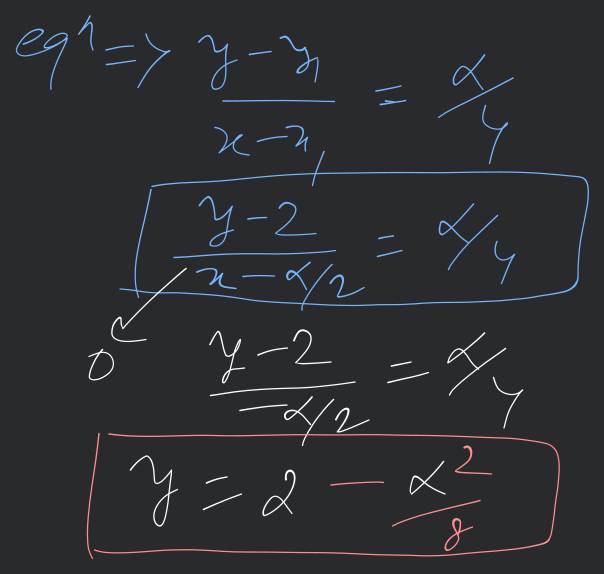 eqⁿ => (y - y₁)/(x - x₁) = α/4
(y - 2)/(x - α/2) = α/4
0 (y - 2)/(-α/2) = α/4
y = 2 - α²/8